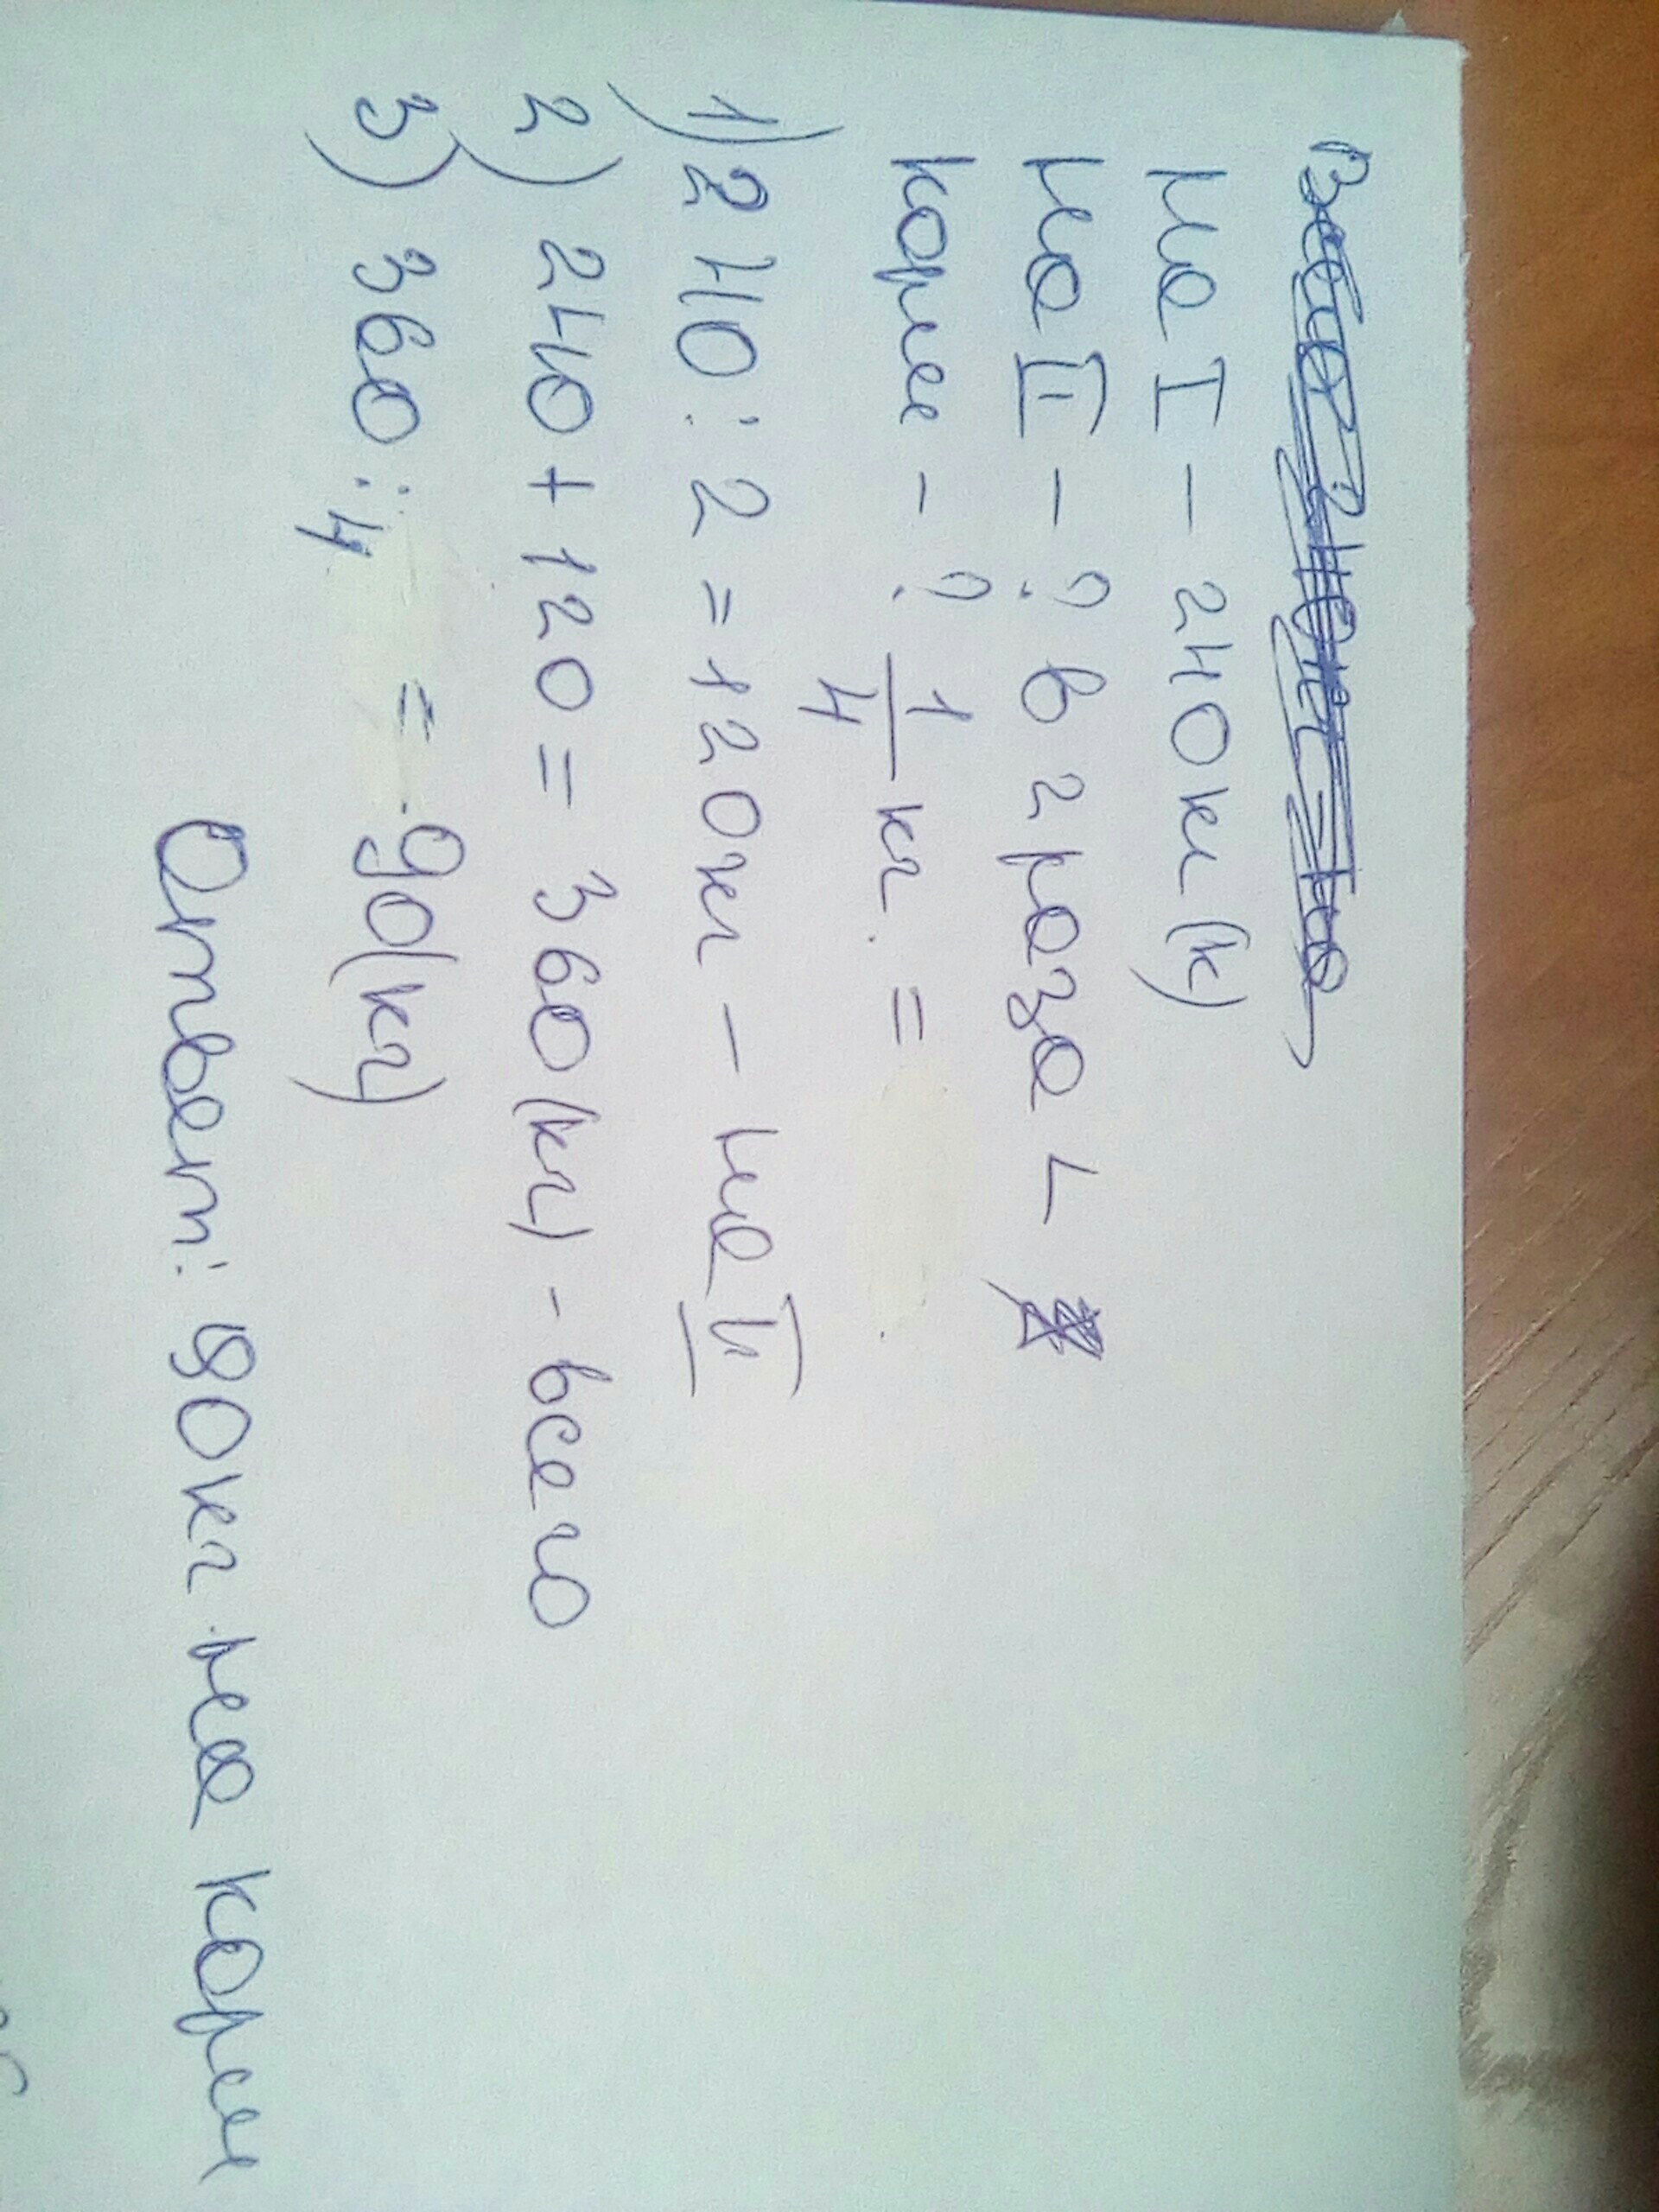 на I - 240 кг (к)
на II - ? в 2 раза <
корм - ? 1/4 кг. =
1) 240 : 2 = 120 кг - на II
2) 240 + 120 = 360 (кг) - всего
3) 360 : 4 = 90 (кг)
Ответ: 90 кг на корм